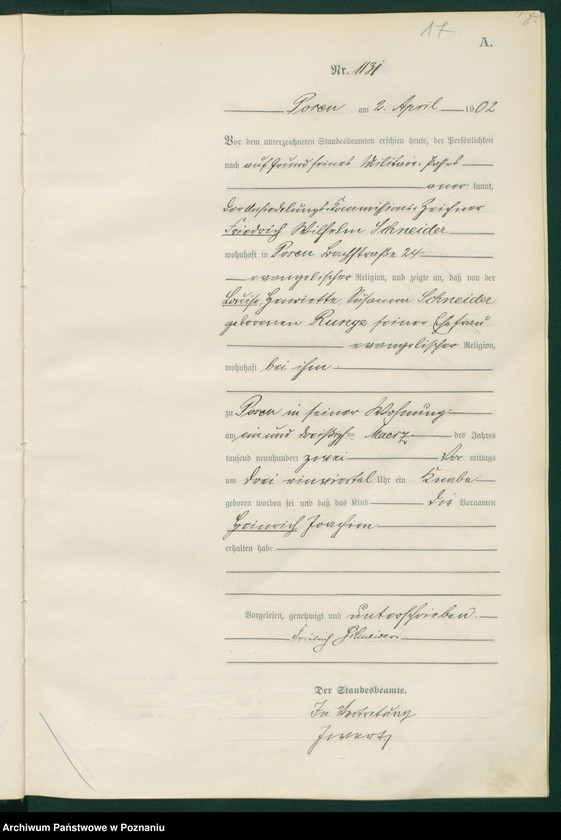 17
A.
Nr. 1131
Posen am 2. April 1902
Vor dem unterzeichneten Standesbeamten erschien heute, der Persönlichkeit
nach auf Grund seines Militair-Passes
aner kannt,
der Ansiedelungs-Kommissions-Zeichner
Friedrich Wilhelm Schneider
wohnhaft in Posen Bachstraße 24
evangelischer Religion, und zeigte an, daß von der
Louise, Henriette, Susanna Schneider
geborenen Runge seiner Ehefrau
evangelischer Religion,
wohnhaft bei ihm
zu Posen in seiner Wohnung
am ein und dreißigsten Maerz des Jahres
tausend neunhundert zwei Vor mittags
um drei einviertel Uhr ein Knabe
geboren worden sei und daß das Kind die Vornamen
Heinrich Joachim
erhalten habe
Vorgelesen, genehmigt und unterschrieben
Friedrich Schneider.
Der Standesbeamte.
In Vertretung
Archiwum Państwowe w Poznaniu